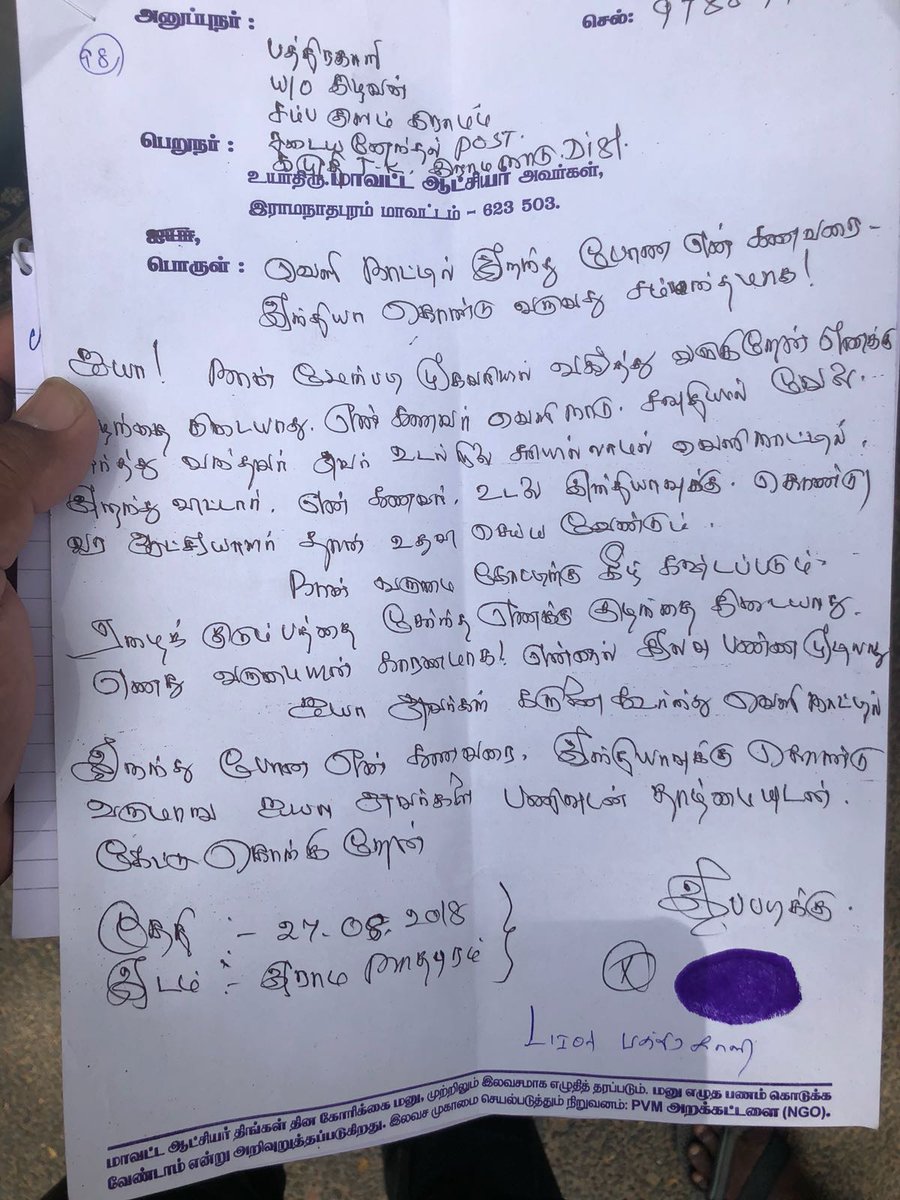 அனுப்புநர் : செல்: 9786
98,
பத்திரகாளி
W/O
கிராமம்
பெறுநர் : சடையனேந்தல் POST.
கமுதி T-K. இராமனாடு. Dist.
உயர்திரு.மாவட்ட ஆட்சியர் அவர்கள்,
இராமநாதபுரம் மாவட்டம் – 623 503.
ஐயா,
பொருள் : வெளி நாட்டில் இறந்து போன என் கணவரை –
இந்தியா கொண்டு வருவது சம்மந்தமாக!
ஐயா! நான் மேற்படி முகவரியில் வசித்து வருகிறேன் எனக்கு
குழந்தை கிடையாது. என் கணவர் வெளிநாடு. சவுதியில் வேலை.
பார்த்து வந்தவர் அவர் உடல் நிலை சரியில்லாமல் வெளிநாட்டில்.
இறந்து விட்டார். என் கணவர். உடலை இந்தியாவுக்கு. கொண்டு
வர ஆட்சியாளர் தான் உதவி செய்ய வேண்டும்.
நான் வருமை கோட்டிற்கு கீழ் கஷ்டப்படும்
ஏழைக் குடும்பத்தை சேர்ந்த எனக்கு குழந்தை கிடையாது.
எனது வருமையின் காரணமாக! என்னால் செலவு பண்ண முடியாது
ஐயா அவர்கள் கருணை கூர்ந்து வெளி நாட்டில்
இறந்து போன என் கணவரை. இந்தியாவுக்கு கொண்டு
வருமாறு ஐயா அவர்களை பணிவுடன் தாழ்மையுடன்.
கேட்டு கொள்கிறேன்
தேதி :- 27-08-2018
இடம் :- இராமநாதபுரம்
இப்படிக்கு.
X
பத்திரகாளி
மாவட்ட ஆட்சியர் திங்கள் தின கோரிக்கை மனு, முற்றிலும் இலவசமாக எழுதித் தரப்படும். மனு எழுத பணம் கொடுக்க
வேண்டாம் என்று அறிவுறுத்தப்படுகிறது. இலவச முகாமை செயல்படுத்தும் நிறுவனம்: PVM அறக்கட்டளை (NGO).